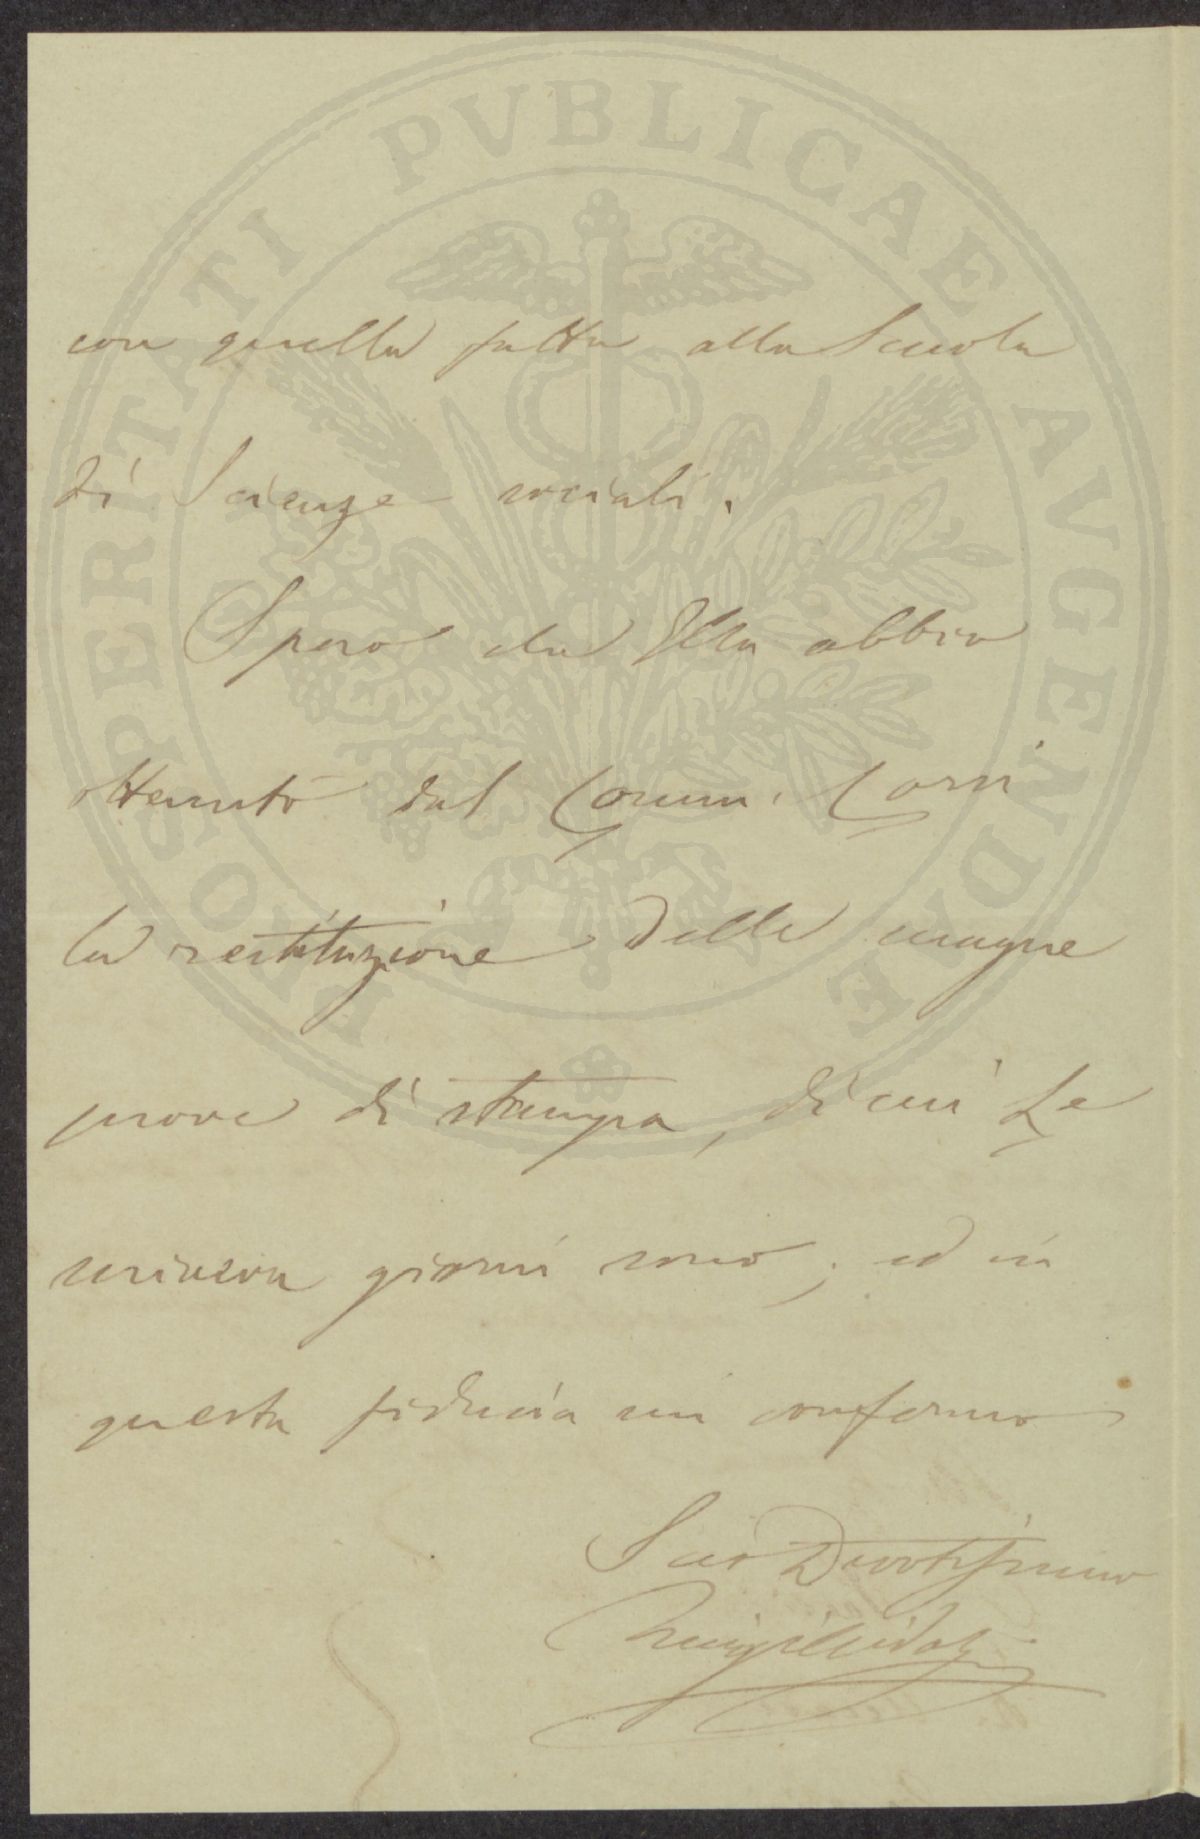 PROSPERITATI PVBLICAE AVGENDAE
con quella fatta alla Scuola
di Scienze sociali.
Spero che Ella abbia
ottenuto dal Comm. Corsi
la restituzione delle magre
prove di stampa, di cui Le
scriveva giorni sono; ed in
questa fiducia mi confermo
Suo Devotissimo